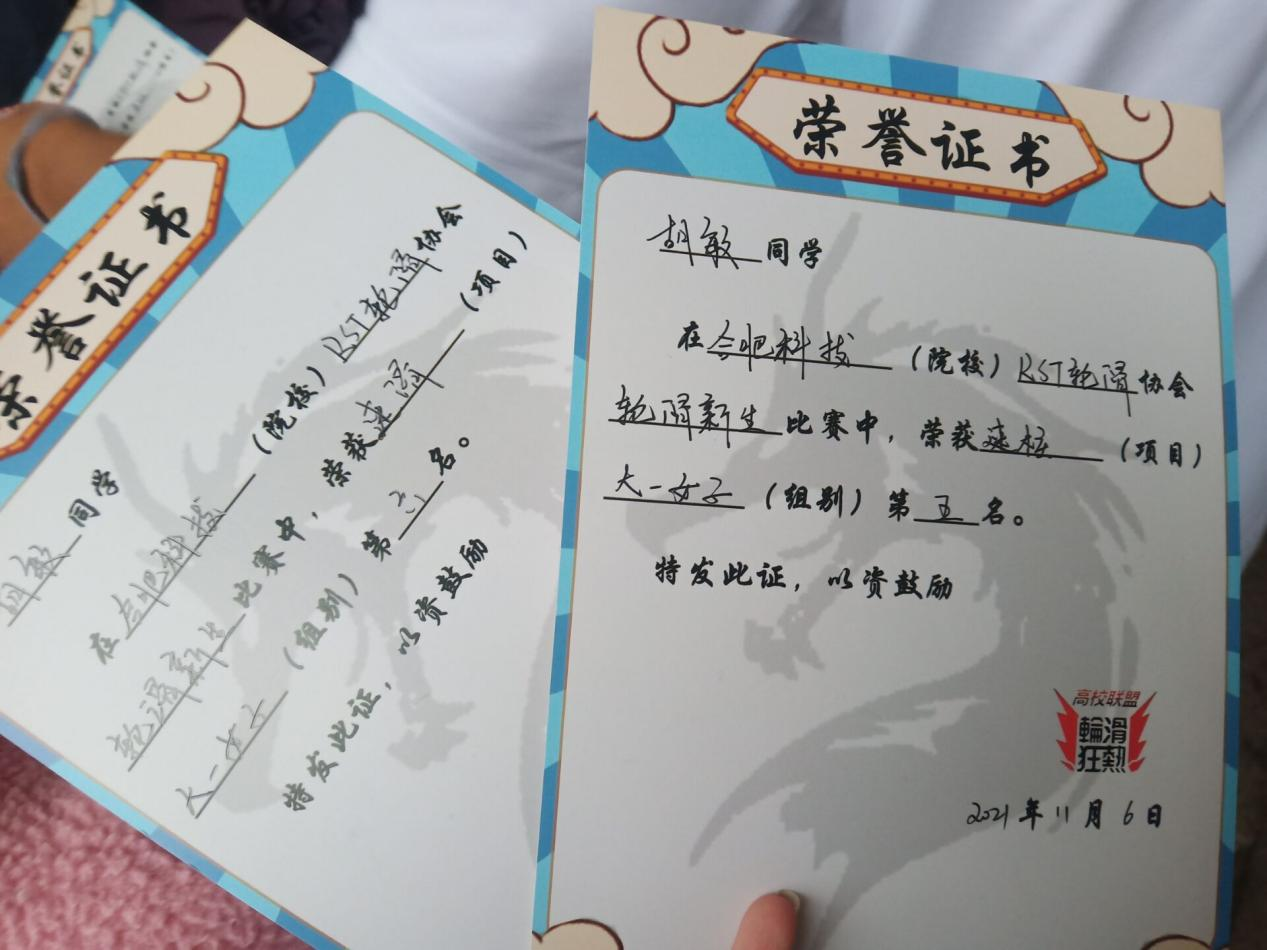 荣誉证书
胡敏 同学
在合肥科技 (院校) RST轮滑协会
轮滑新生 比赛中，荣获速滑 (项目)
大一女子 (组别) 第 六 名。
特发此证，以资鼓励
荣誉证书
胡敏 同学
在合肥科技 (院校) RST轮滑协会
轮滑新生 比赛中，荣获速桩 (项目)
大一女子 (组别) 第 五 名。
特发此证，以资鼓励
高校联盟
輪滑
狂熱
2021年11月6日